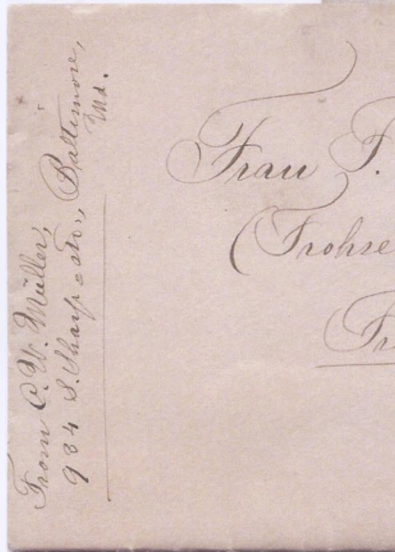 From C. W. Müller,
984 S. Sharp=str., Baltimore,
Md.
Frau F.
(Frohse
Fr